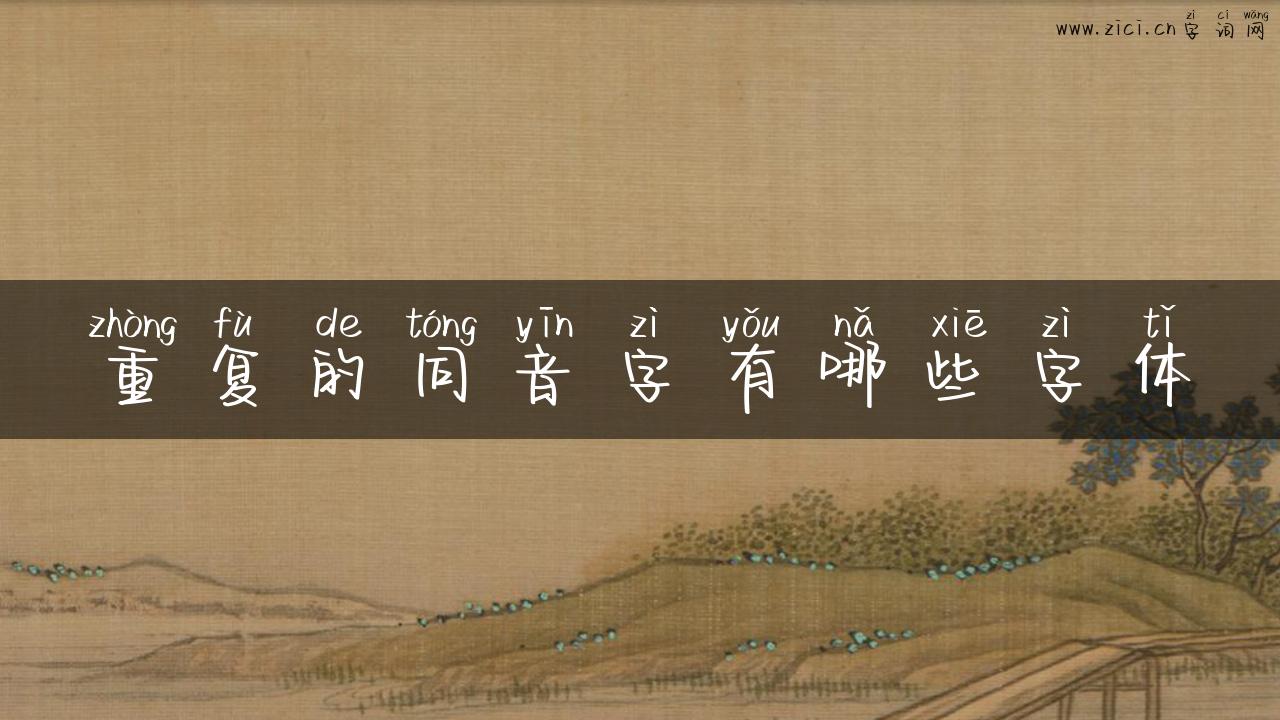 zì cí wǎng
www.zici.cn字词网
zhòng fù de tóng yīn zì yǒu nǎ xiē zì tǐ
重复的同音字有哪些字体